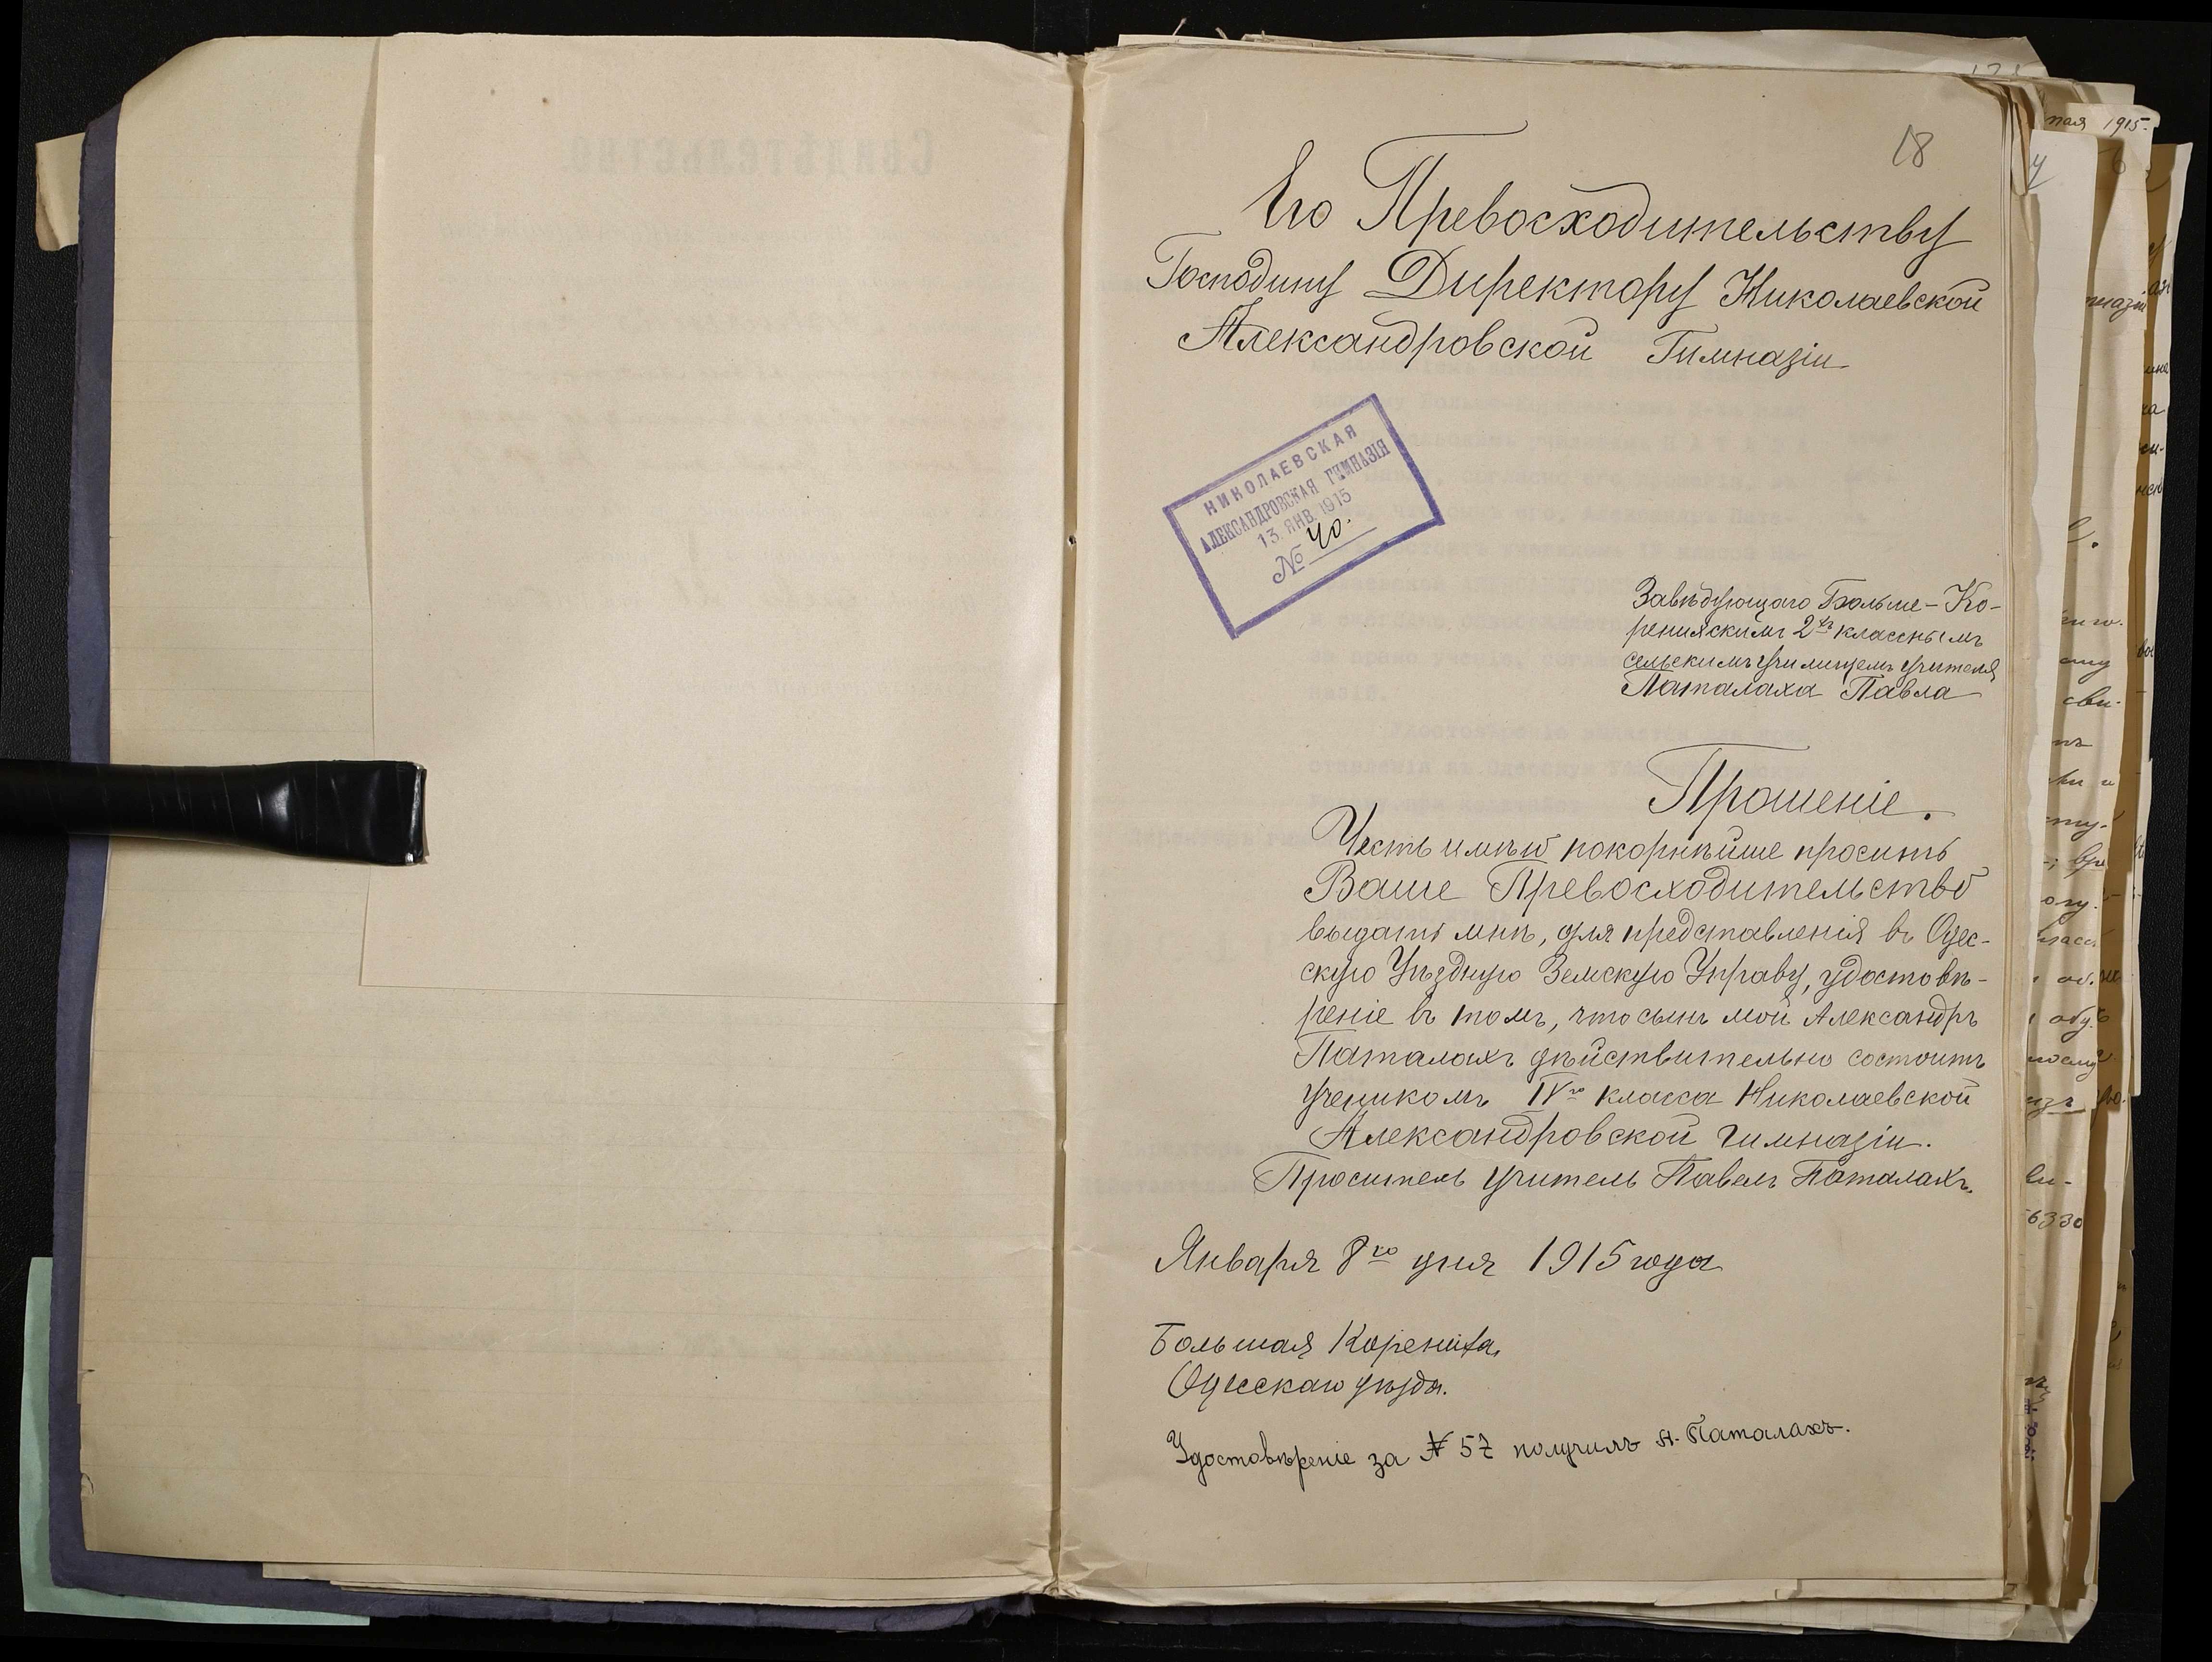 18
Его Превосходительству
Господину Директору Николаевской
Александровской Гимназіи
НИКОЛАЕВСКАЯ
АЛЕКСАНДРОВСКАЯ ГИМНАЗІЯ
13. ЯНВ. 1915
№ 40.
Завѣдующаго Больше-Ко-
ренихскимъ 2хъ класснымъ
сельскимъ училищемъ учителя
Паталаха Павла
Прошеніе.
Честь имѣю покорнѣйше просить
Ваше Превосходительство
выдать мнѣ, для представленія въ Одес-
скую Уѣздную Земскую Управу, удостовѣ-
реніе въ томъ, что сынъ мой Александръ
Паталахъ дѣйствительно состоитъ
ученикомъ IVго класса Николаевской
Александровской гимназіи.
Проситель учитель Павелъ Паталахъ.
Января 8го дня 1915 года
Большая Корениха,
Одесскаго уѣзда.
Удостовѣреніе за № 57 получилъ А. Паталахъ.
мая 1915.
6330